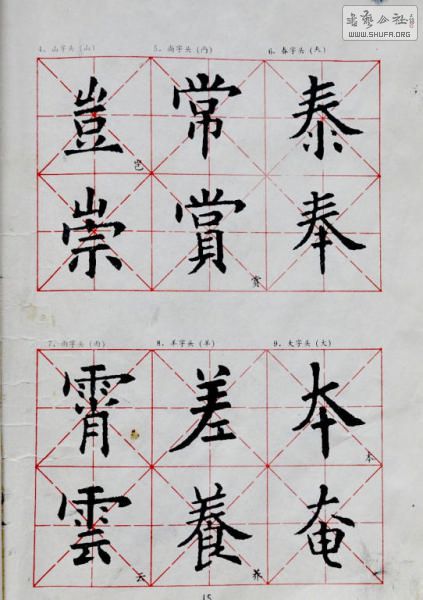 書藝公社
WWW.SHUFA.ORG
4、山字头(山) 5、尚字头 6、春字头
豈 岂 常 泰
崇 賞 赏 奉
7、雨字头(雨) 8、羊字头(羊) 9、大字头(大)
霄 差 夲 本
雲 云 養 养 奄
15